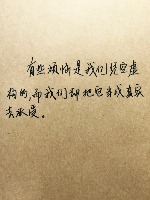 有些烦恼是我们凭空虚
构的,而我们却把它当成真实
去承受。